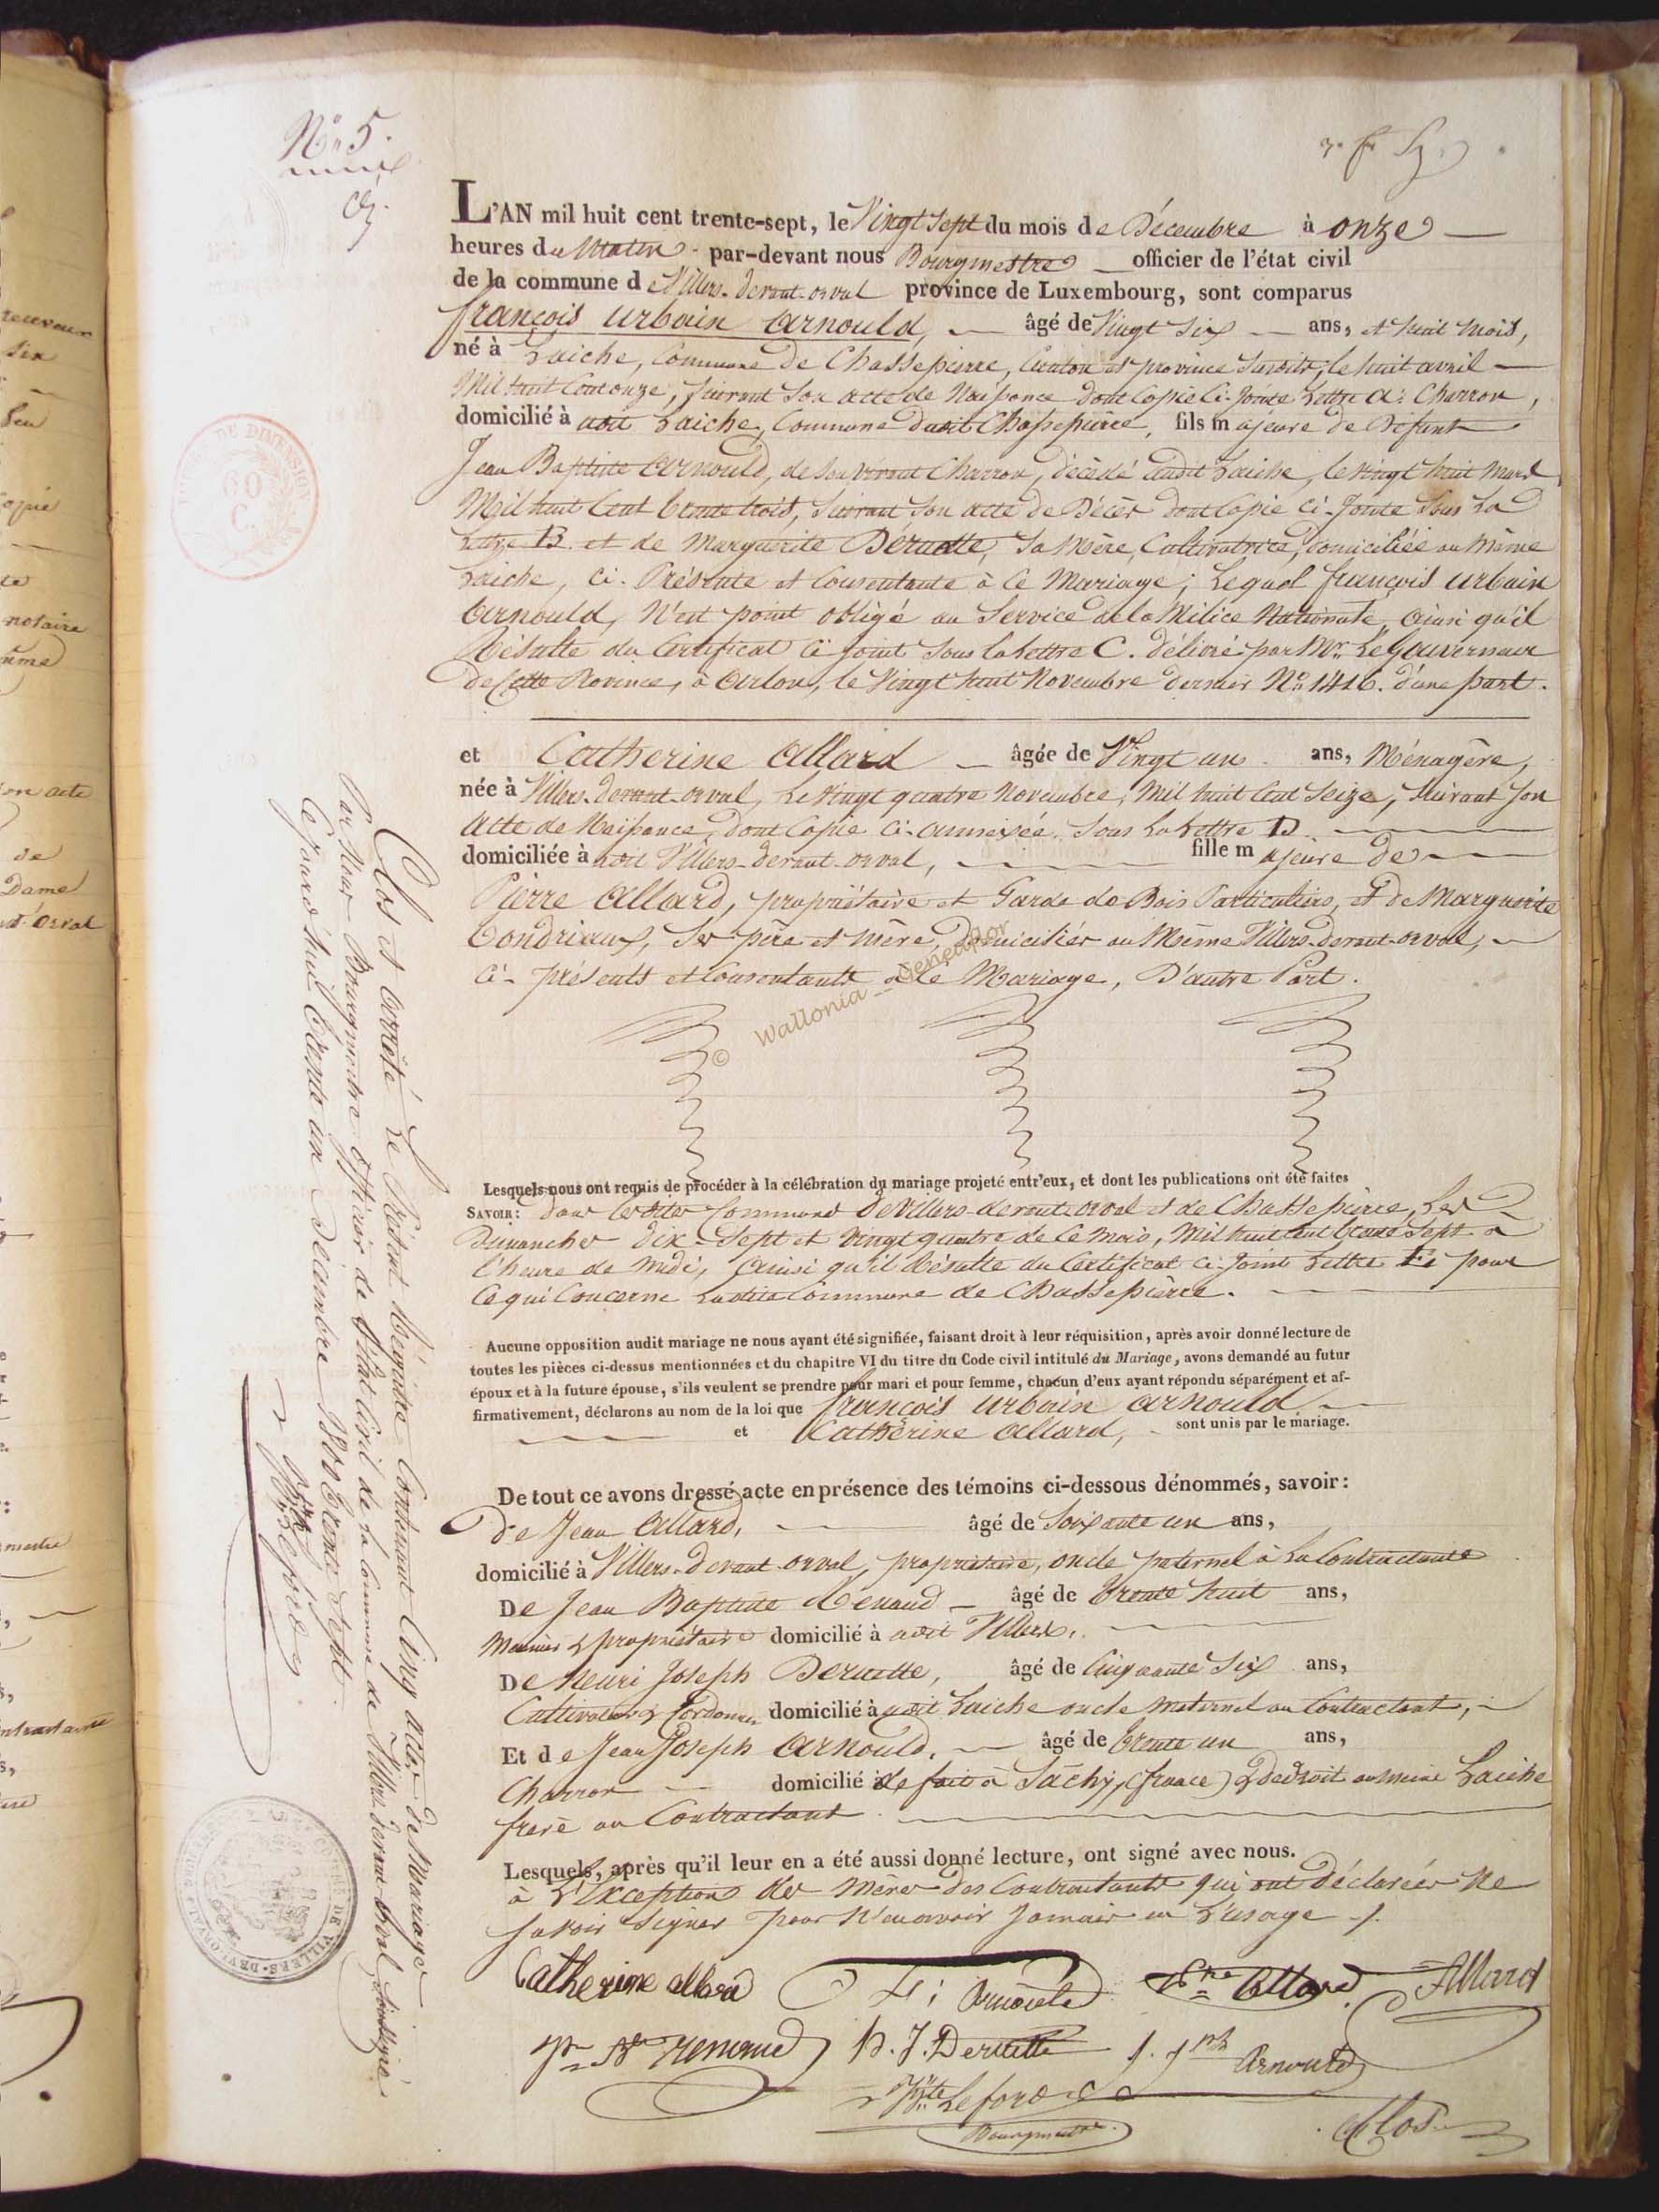 N° 5.
L'AN mil huit cent trente-sept, le Vingt sept du mois de Décembre à onze
heures du Matin par-devant nous Bourgmestre officier de l'état civil
de la commune de Villers-devant-orval province de Luxembourg, sont comparus
françois urbain arnould, âgé de Vingt six ans, et huit mois,
né à Laiche, Commune de Chassepierre, Canton et province susdits, le huit avril
Mil huit Cent onze, suivant son acte de Naissance dont Copie Ci-jointe Lettre A: Charron,
domicilié à audit Laiche, Commune dudit Chassepierre, fils majeure de Défunt
Jean Baptiste Arnould, de son vivant Charron, décédé audit Laiche, le vingt huit mars
Mil huit Cent trente trois, suivant son acte de Décès dont Copie Ci-Jointe Sous La
Lettre B. et de Marguerite Déruette, sa Mère, Cultivatrice, domiciliée au même
Laiche, ci-Présente et Consentante à Ce Mariage; Lequel françois urbain
Arnould, N'est point obligé au Service de la Milice Nationale, ainsi qu'il
Résulte du Certificat ci-joint sous la Lettre C. délivré par Mr. Le Gouverneur
de Cette Province, à Arlon, le Vingt huit Novembre dernier N° 1416. d'une part.
et Catherine Allard âgée de Vingt un ans, Ménagère,
née à Villers-devant-orval, Le vingt quatre Novembre, Mil huit Cent Seize, suivant son
Acte de Naissance, dont Copie Ci-annexée Sous La Lettre D.
domiciliée à audit Villers-devant-orval, fille majeure de
Pierre Allard, propriétaire et Garde de Bois Particuliers, et de Marguerite
Tondriaux, Ses père et mère, domiciliés au Même Villers-devant-orval,
Ci-présents et Consentants à Ce Mariage, D'autre Part.
© Wallonia - Geneaflor
Lesquels nous ont requis de procéder à la célébration du mariage projeté entr'eux, et dont les publications ont été faites
SAVOIR: dans Lesdites Communes de Villers-devant-orval et de Chassepierre, Les
Dimanches dix-Sept et vingt quatre de Ce Mois, Mil huit Cent trente Sept à
l'heure de midi, Ainsi qu'il Résulte du Certificat Ci-Joint Lettre E. pour
Ce qui Concerne Ladite Commune de Chassepierre.
Aucune opposition audit mariage ne nous ayant été signifiée, faisant droit à leur réquisition, après avoir donné lecture de
toutes les pièces ci-dessus mentionnées et du chapitre VI du titre du Code civil intitulé du Mariage, avons demandé au futur
époux et à la future épouse, s'ils veulent se prendre pour mari et pour femme, chacun d'eux ayant répondu séparément et af-
firmativement, déclarons au nom de la loi que françois urbain arnould
et Catherine Allard, sont unis par le mariage.
De tout ce avons dressé acte en présence des témoins ci-dessous dénommés, savoir:
de Jean Allard, âgé de Soixante un ans,
domicilié à Villers-devant-orval, propriétaire, oncle paternel à La Contractante
De Jean Baptiste Renaud âgé de trente huit ans,
Meunier & propriétaire domicilié à audit Villers,
De Henri Joseph Deruette, âgé de Cinquante Six ans,
Cultivateur & Cordonnier domicilié à audit Laiche oncle Maternel au Contractant,
Et de Jean Joseph Arnould, âgé de trente un ans,
Charron domicilié de fait à Sachy, (france) & de droit au meme Laiche
frere au Contractant.
Lesquels, après qu'il leur en a été aussi donné lecture, ont signé avec nous.
à L'Exception des Mères des Contractants qui ont déclarées Ne
savoir signer pour N'en avoir Jamais eu L'usage.
Catherine allard F: Arnould Allard Allard
Jn Bte Renaud H. J. Deruette J. Jph Arnould
Lefort
Bourgmestre
Clos et arrêté Le Présent Régistre Contenant Cinq actes de Mariage
Par Nous Bourgmestre officier de l'état Civil de La Commune de Villers-devant-orval Soussigné
Ce Jourd'hui trente un Décembre 1800 trente Sept.
60
C.